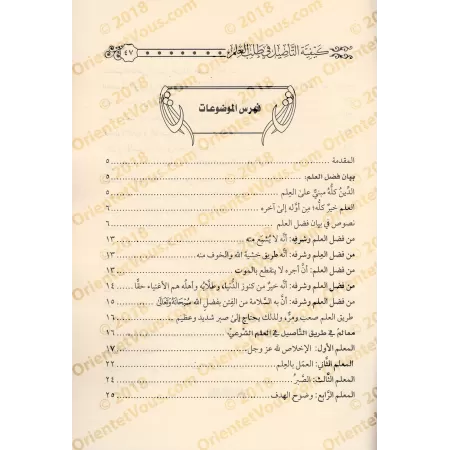 كيفية التأصيل في طلب العلم
٤٧
فهرس الموضوعات
المقدمة ٥
بيان فضل العلم: ٥
الدِّينُ كلُّه مبنيٌّ على العِلم ٥
العلم خيرٌ كلُّه؛ مِن أوَّله إلى آخره ٦
نصوص في بيان فضل العلم ٦
من فضل العلم وشرفه: أنَّه لا يُشبَع منه ١٣
من فضل العلم وشرفه: أنَّه طريق خشية الله والخوف منه ١٣
من فضل العلم وشرفه: أنَّ أجره لا ينقطع بالموت ١٣
من فضل العلم وشرفه: أنَّه خيرٌ من كنوز الدُّنيا، وطلَّابُه وأهلُه هم الأغنياء حقًّا ١٤
من فضل العلم وشرفه: أنَّ به السَّلامة من الفِتن بفضل الله سُبْحَانَهُ وَتَعَالَى ١٥
طريق العلم صعب وعِزٌّ، ولذلك يحتاج إلى صبر شديد وعظيم ١٦
معالم في طريق التَّأصيل في العلم الشَّرعيِّ ١٦
المعلم الأول: الإخلاص لله عز وجل ١٧
المعلم الثَّاني: العمَل بالعِلم ٢٢
المعلم الثَّالث: الصَّبرُ ٢٤
المعلم الرَّابع: وضوح الهدف ٢٥
© 2018
OrientetVous.com